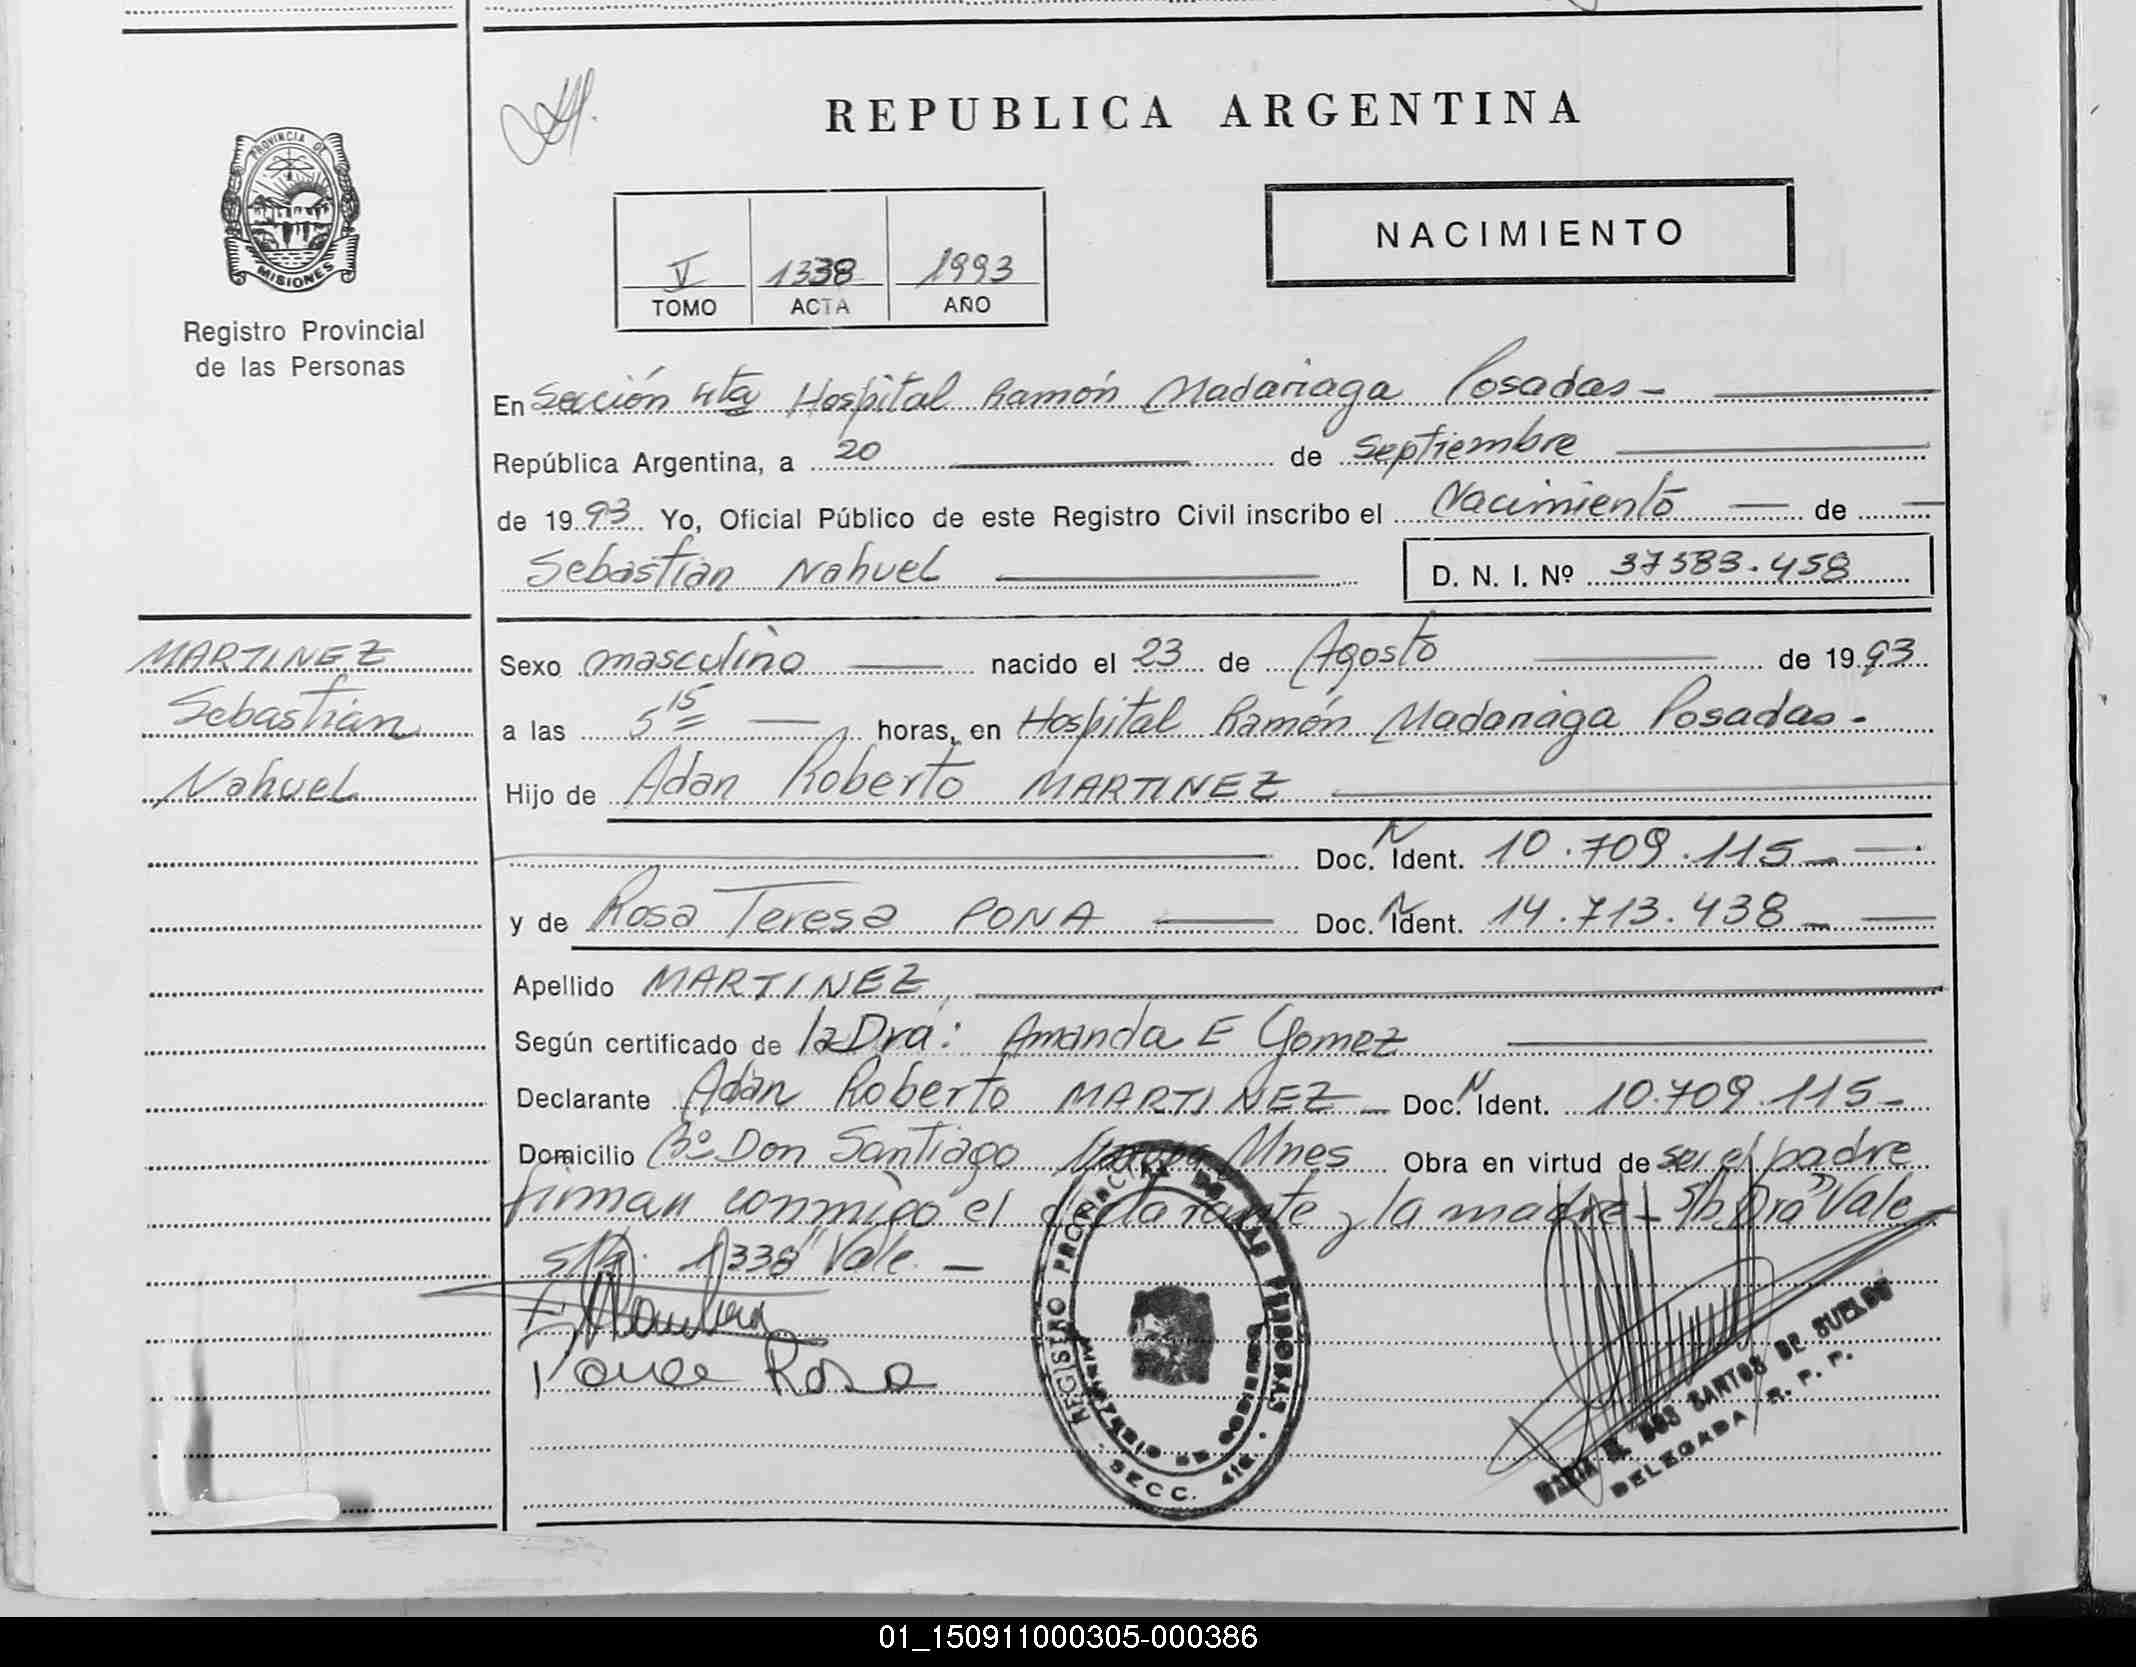 PROVINCIA DE
MISIONES
Registro Provincial
de las Personas
MARTINEZ
Sebastian
Nahuel
REPUBLICA ARGENTINA
V 1338 1993
TOMO ACTA AÑO
NACIMIENTO
En Sección 4ta Hospital Ramón Madariaga Posadas -
República Argentina, a 20 de Septiembre
de 1993 Yo, Oficial Público de este Registro Civil inscribo el Nacimiento de
Sebastian Nahuel D. N. I. Nº 37583.458
Sexo masculino nacido el 23 de Agosto de 1993
a las 5 15 horas, en Hospital Ramón Madariaga Posadas -
Hijo de Adan Roberto MARTINEZ
Doc. N Ident. 10.709.115 -
y de Rosa Teresa PONA Doc. N Ident. 14.713.438 -
Apellido MARTINEZ
Según certificado de la Dra: Amanda E Gomez
Declarante Adan Roberto MARTINEZ - Doc. N Ident. 10.709.115 -
Domicilio Bº Don Santiago Mnes Obra en virtud de ser el padre
firman conmigo el declarante y la madre - S/b Dra" Vale
1338" Vale. -
Rosa
REGISTRO PROVINCIAL DE LAS PERSONAS
MINISTERIO DE GOBIERNO
SECC. 4ta.
MARIA DOS SANTOS DE SUELDO
DELEGADA R. P. P.
01_150911000305-000386